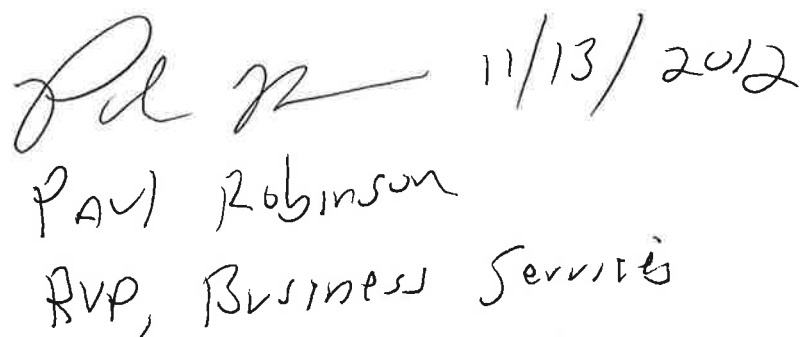 11/13/2012
Paul Robinson
RVP, Business Services